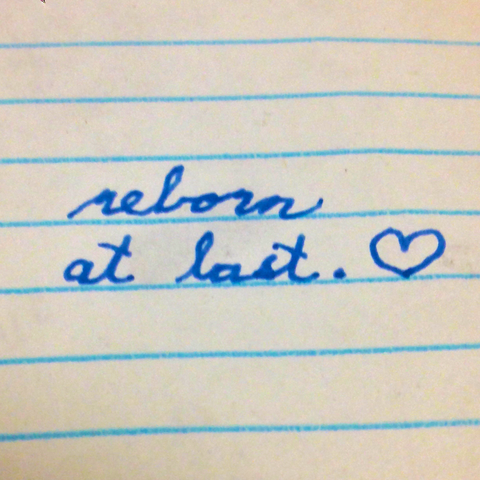 reborn
at last. ♡